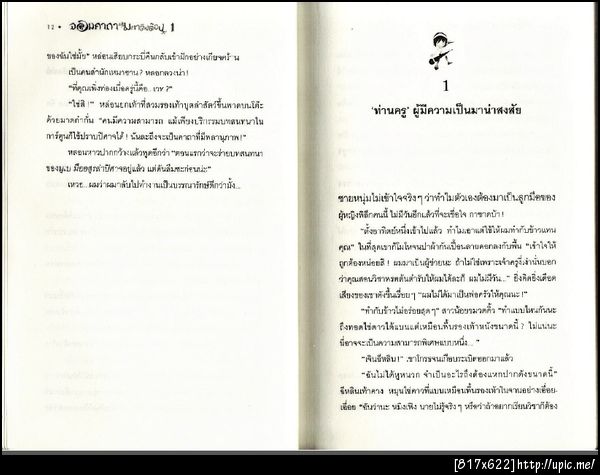 12 • จอมคาถามหาวิงเวียน 1
ของฉันใช่มั้ย" หล่อนเฮียบาระบี่คืนกลับเข้าฝักอย่างเกียจคร้าน
เป็นคนสำนักเหมาซาน? หลอกลวงน่า!
"ที่คุณเพิ่งท่องเมื่อครู่นี้คือ..เวท ?"
"ใช่สิ!" หล่อนยกเท้าที่สวมรองเท้าบูตล่าสัตว์ขึ้นพาดบนโต๊ะ
ด้วยมาดกำกั่น "คนมีความสามารถ แม้เพียงบริกรรมบทสนทนาใน
การ์ตูนก็ใช้ปราบปีศาจได้! นั่นละถึงจะเป็นคาถาที่มีพลานุภาพ!"
หล่อนหาวปากกว้างแล้วพูดอีกว่า "ตอนแรกว่าจะร่ายบทสนทนา
ของนูเบ มืออสูรล่าปีศาจอยู่แล้ว แต่ดันลืมซะก่อนน่ะ"
เหวย... ผมว่าผมกลับไปทำงานเป็นบรรณารักษ์ดีกว่ามั้ง...
1
'ท่านครู' ผู้มีความเป็นมาน่าสงสัย
ชายหนุ่มไม่เข้าใจจริงๆ ว่าทำไมตัวเองต้องมาเป็นลูกมือของ
ผู้หญิงพิลึกคนนี้ ไม่มีวันอีกแล้วที่จะเชื่อใจ กาชาดบ้า!
"ตั้งอาทิตย์หนึ่งเข้าไปแล้ว ทำไมเอาแต่ใช้ให้ผมทำกับข้าวแทน
คุณ" ในที่สุดเขาก็โมโหจนปาผ้ากันเปื้อนลายดอกลงกับพื้น "เข้าใจให้
ถูกต้องหน่อยสิ! ผมมาเป็นผู้ช่วยนะ ถ้าไม่ใช่เพราะเจ้าครูงั่งนั่นบอก
ว่าคุณสอนวิชาพรตลับตำรับให้ผมได้ละก็ ผมไม่มีวัน..." ยิ่งคิดยิ่งเดือด
เสียงของเขาดังขึ้นเรื่อยๆ "ผมไม่ได้มาเป็นพ่อครัวให้คุณนะ!"
"ทำกับข้าวไม่อร่อยสุดๆ" สาวน้อยขมวดคิ้ว "ทำแบบไหนกันนะ
ถึงทอดไข่ดาวได้แบนแต๋เหมือนพื้นรองเท้าหนังขนาดนี้ ? ไม่แน่นะ
นี่อาจจะเป็นความสามารถพิเศษแบบหนึ่ง..."
"เจินอีหลิน!" เขาโกรธจนเกือบระเบิดออกมาแล้ว
"ฉันไม่ได้หูหนวก จำเป็นอะไรถึงต้องแหกปากดังขนาดนี้"
อีหลินเท้าคาง หมุนไข่ดาวที่แบนเหมือนพื้นรองเท้าในจานอย่างเอื่อย-
เอื่อย "ฉันว่านะ หมิงเฟิง นายไม่รู้จริงๆ หรือว่าถ้าอยากเรียนวิชาก็ต้อง
[817x622]http://upic.me/